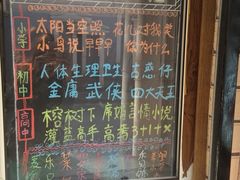 小学
太阳当空照 花儿对我笑
小鸟说早早早 你为什么
初中
人体生理卫生 古惑仔
金庸武侠 四大天王
高中
榕树下 席娟言情小说
灌篮高手 高考3+1+X